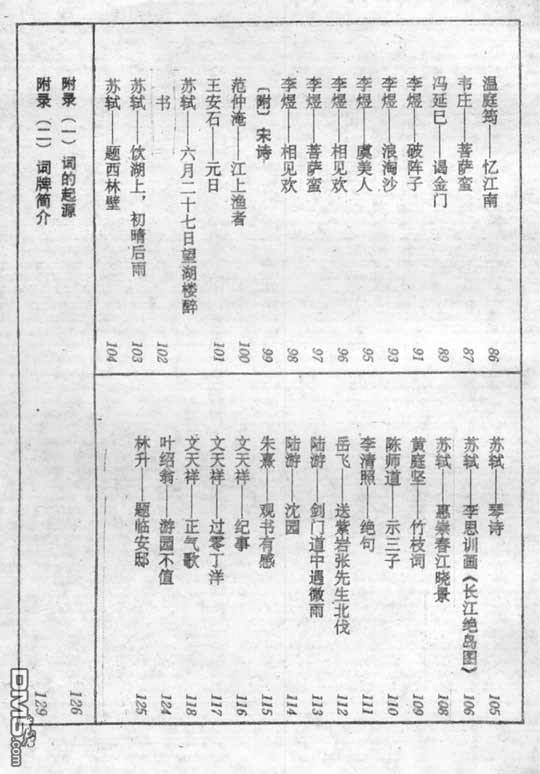 温庭筠——忆江南 86
韦庄——菩萨蛮 87
冯延巳——谒金门 89
李煜——破阵子 91
李煜——浪淘沙 93
李煜——虞美人 95
李煜——相见欢 96
李煜——菩萨蛮 97
李煜——相见欢 98
〔附〕宋诗 99
范仲淹——江上渔者 100
王安石——元日 101
苏轼——六月二十七日望湖楼醉
书 102
苏轼——饮湖上，初晴后雨 103
苏轼——题西林壁 104
苏轼——琴诗 105
苏轼——李思训画《长江绝岛图》 106
苏轼——惠崇春江晓景 108
黄庭坚——竹枝词 109
陈师道——示三子 110
李清照——绝句 111
岳飞——送紫岩张先生北伐 112
陆游——剑门道中遇微雨 113
陆游——沈园 114
朱熹——观书有感 115
文天祥——纪事 116
文天祥——过零丁洋 117
文天祥——正气歌 118
叶绍翁——游园不值 124
林升——题临安邸 125
附录（一）词的起源 126
附录（二）词牌简介 129
DM5.com